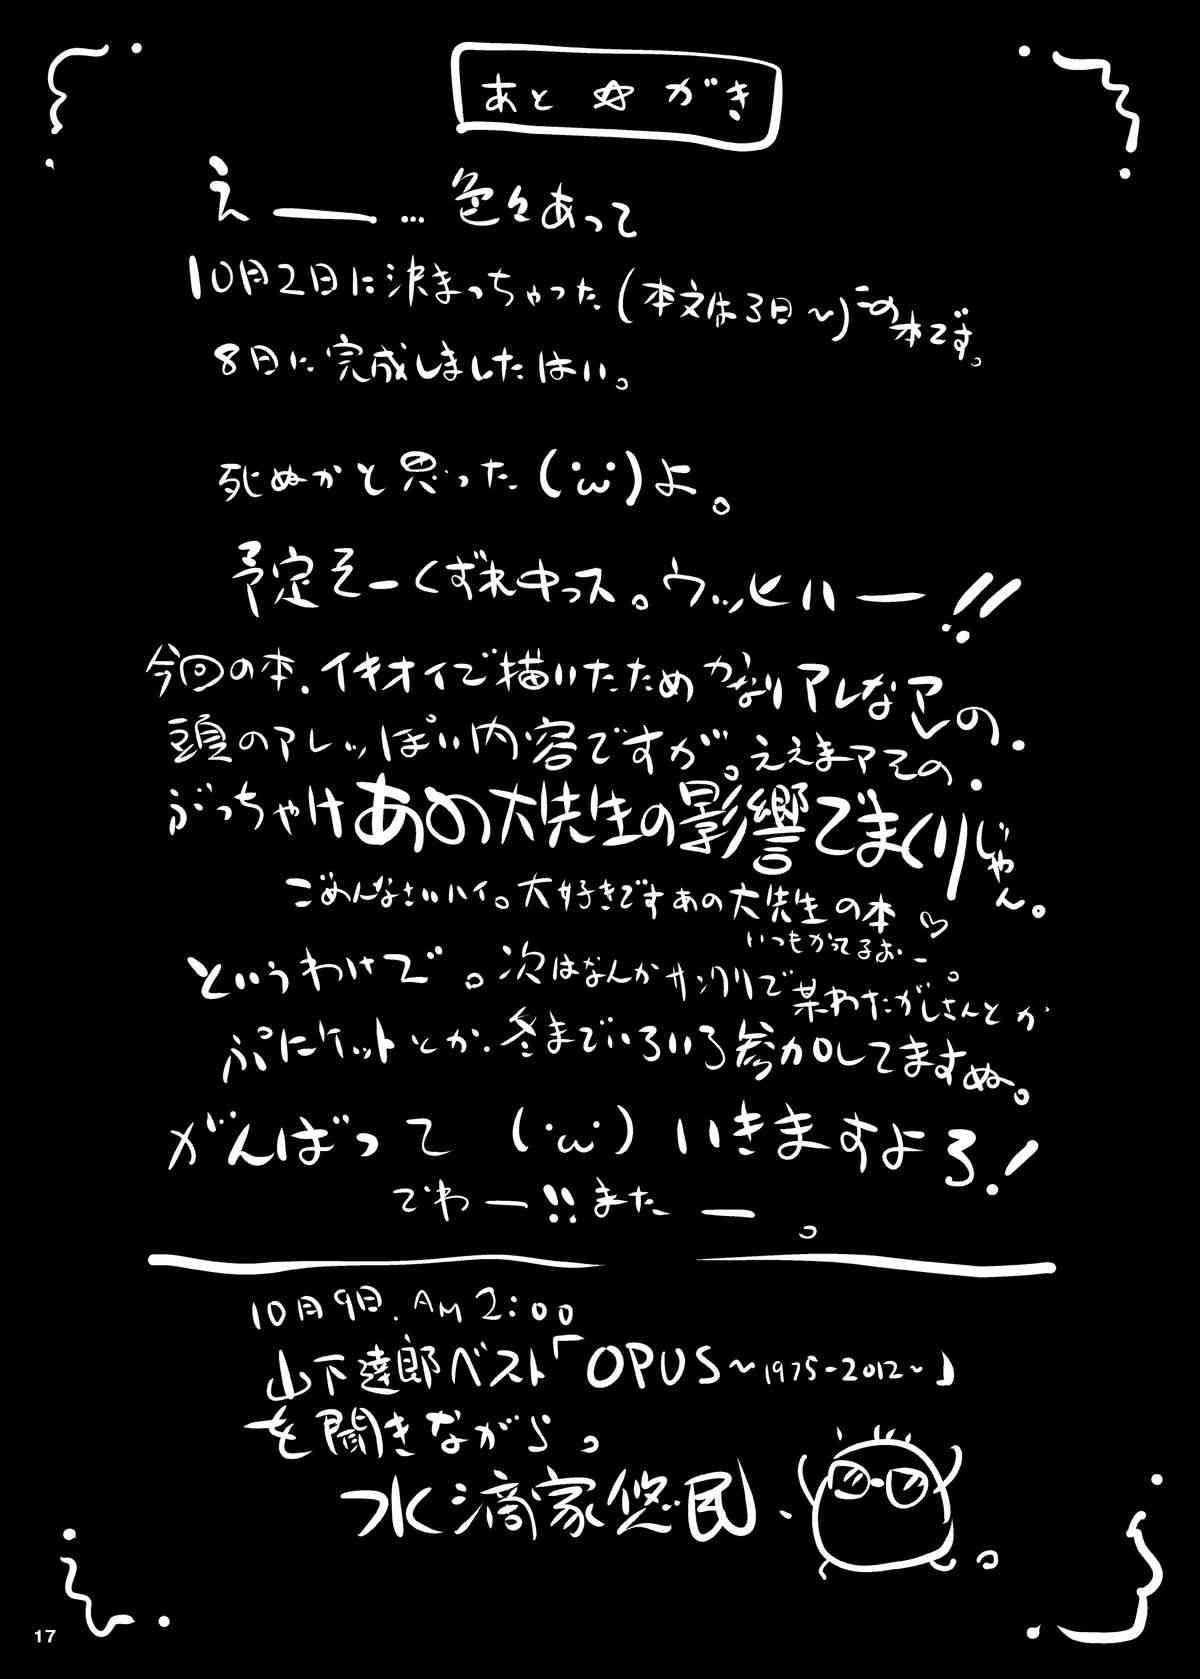 あと☆がき
えー…色々あって
10月2日に決まっちゃった(本文は3日〜)この本です。
8日に完成しましたはい。
死ぬかと思った(´ω`)よ。
予定そーくずれキっス。ウッヒハー!!
今回の本、イキオイで描いたためかなりアレなアレの、
頭のアレッぽい内容ですが。ええまアその、
ぶっちゃけあの大先生の影響でまくりじゃん。
ごめんなさいハイ。大好きですあの大先生の本♡
いつもかってるおー
というわけで。次はなんかサンクリで某わたがしさんとか
ぷにケットとか、冬までいろいろ参加してますぬ。
がんばって(´ω`)いきますよろ!
でわー!!またー。
10月9日、AM2:00
山下達郎ベスト「OPUS〜1975-2012〜」
を聞きながら。
水滴家悠民、
17